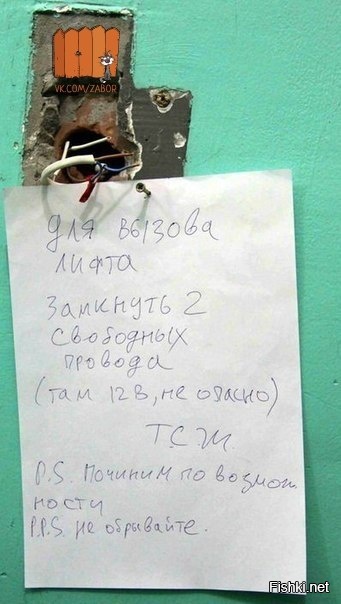 VK.COM/ZABOR
для вызова
лифта
Замкнуть 2
свободных
провода
(там 12В, не опасно)
Т.С.Ж
P.S. Починим по возмож
ности
P.P.S. не обрывайте.
Fishki.net